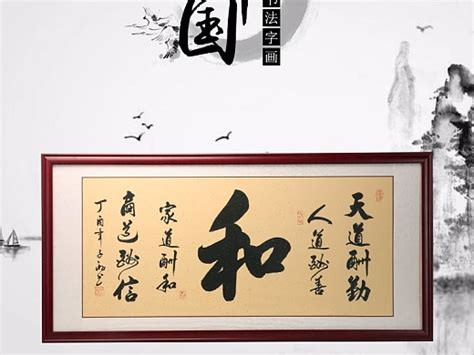 国
书法字画
天道酬勤
人道酬善
和
家道酬和
商道酬信
丁酉年